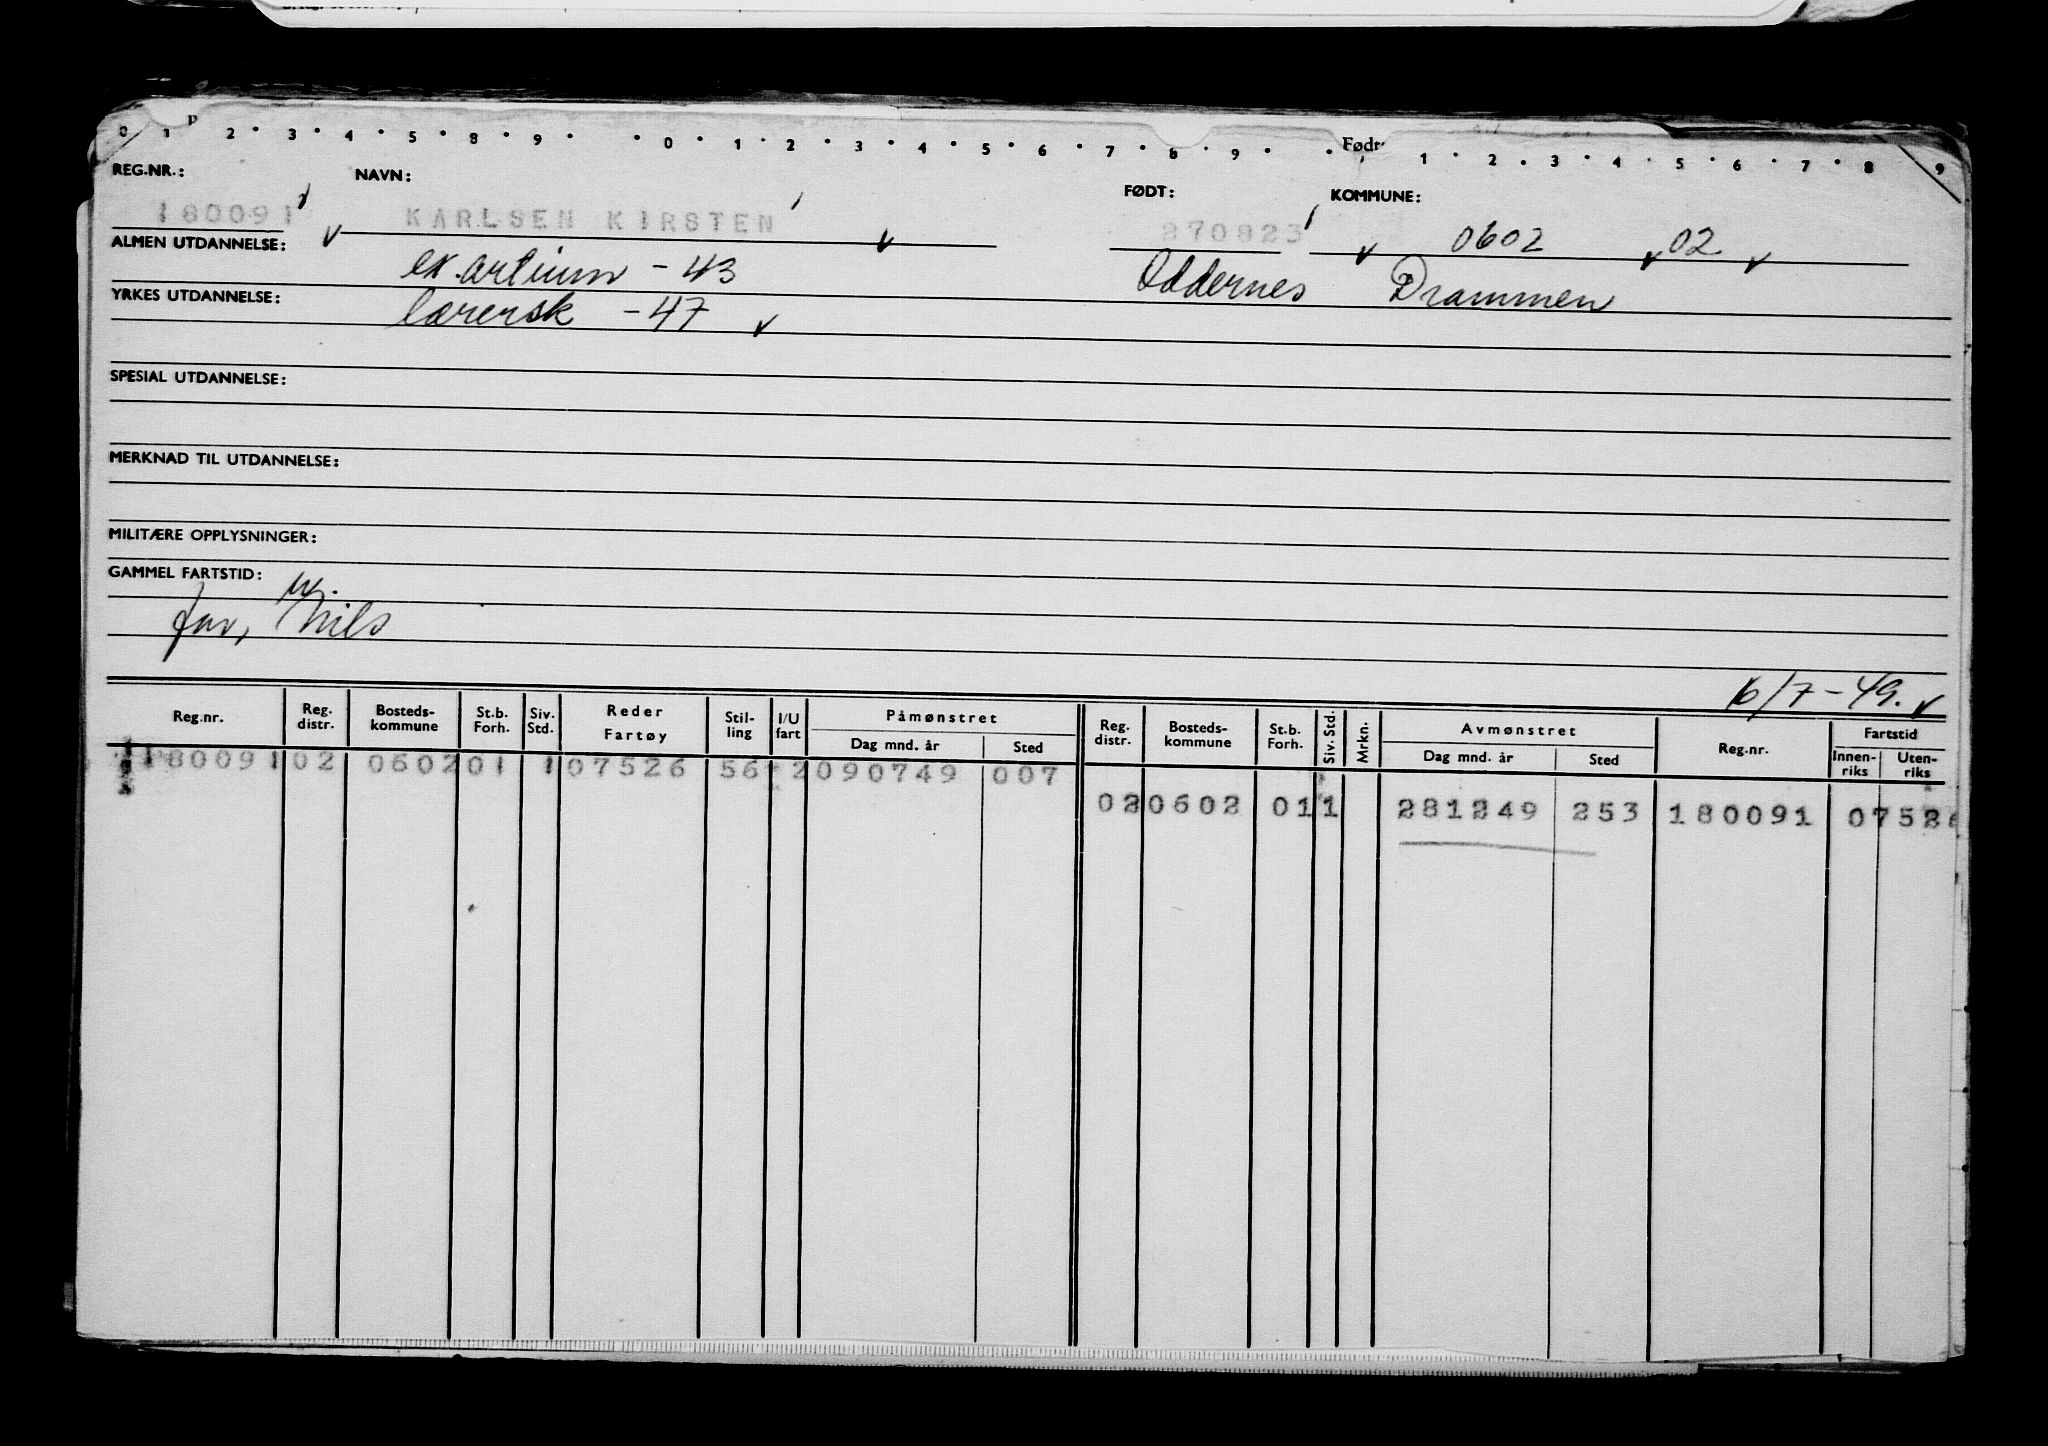 0 1 2 3 4 5 8 9 0 1 2 3 4 5 6 7 8 9 Født: 1 2 3 4 5 6 7 8 9
REG.NR.: NAVN: FØDT: KOMMUNE:
180091 KARLSEN KIRSTEN 270823 0602 02
ALMEN UTDANNELSE: ex.artium - 43 Oddernes Drammen
YRKES UTDANNELSE: lærersk - 47
SPESIAL UTDANNELSE:
MERKNAD TIL UTDANNELSE:
MILITÆRE OPPLYSNINGER:
GAMMEL FARTSTID:
far, Nils
6/7-49.
Reg.nr. Reg. distr. Bosteds-kommune St.b. Forh. Siv. Std. Reder Fartøy Stil-ling I/U fart Påmønstret Dag mnd. år Sted Reg. distr. Bosteds-kommune St.b. Forh. Siv. Std. Mrkn. Avmønstret Dag mnd. år Sted Reg.nr. Fartstid Innen-riks Uten-riks
180091 02 0602 01 1 07526 56 2 090749 007
02 0602 01 1 281249 253 180091 07526